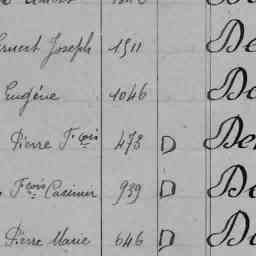 Ernest Joseph 1511 De
Eugéne 1046 De
Pierre Fçois 473 D De
Fçois Casimir 939 D De
Pierre Marie 646 D De